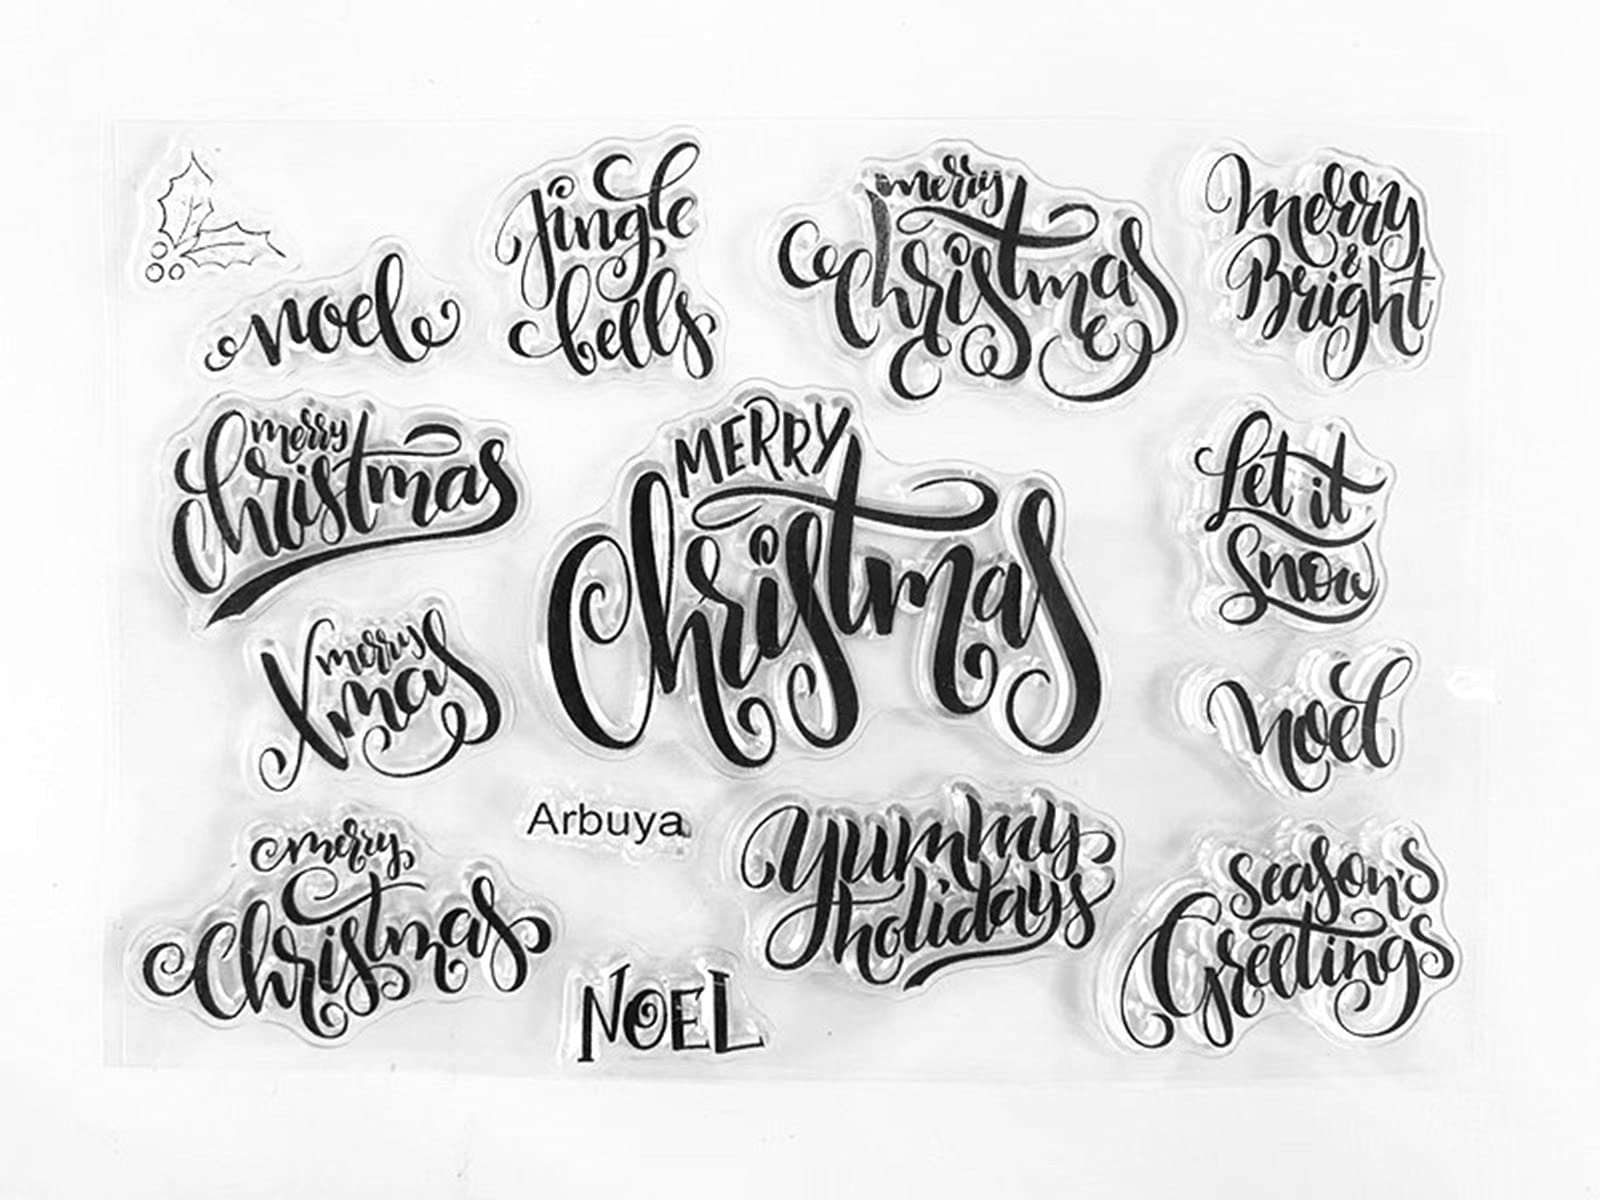 noel
Jingle
bells
merry
Christmas
Merry
&
Bright
merry
Christmas
MERRY
Christmas
Let it
Snow
merry
Xmas
noel
Arbuya
merry
Christmas
NOEL
yummy
holidays
Season's
Greetings